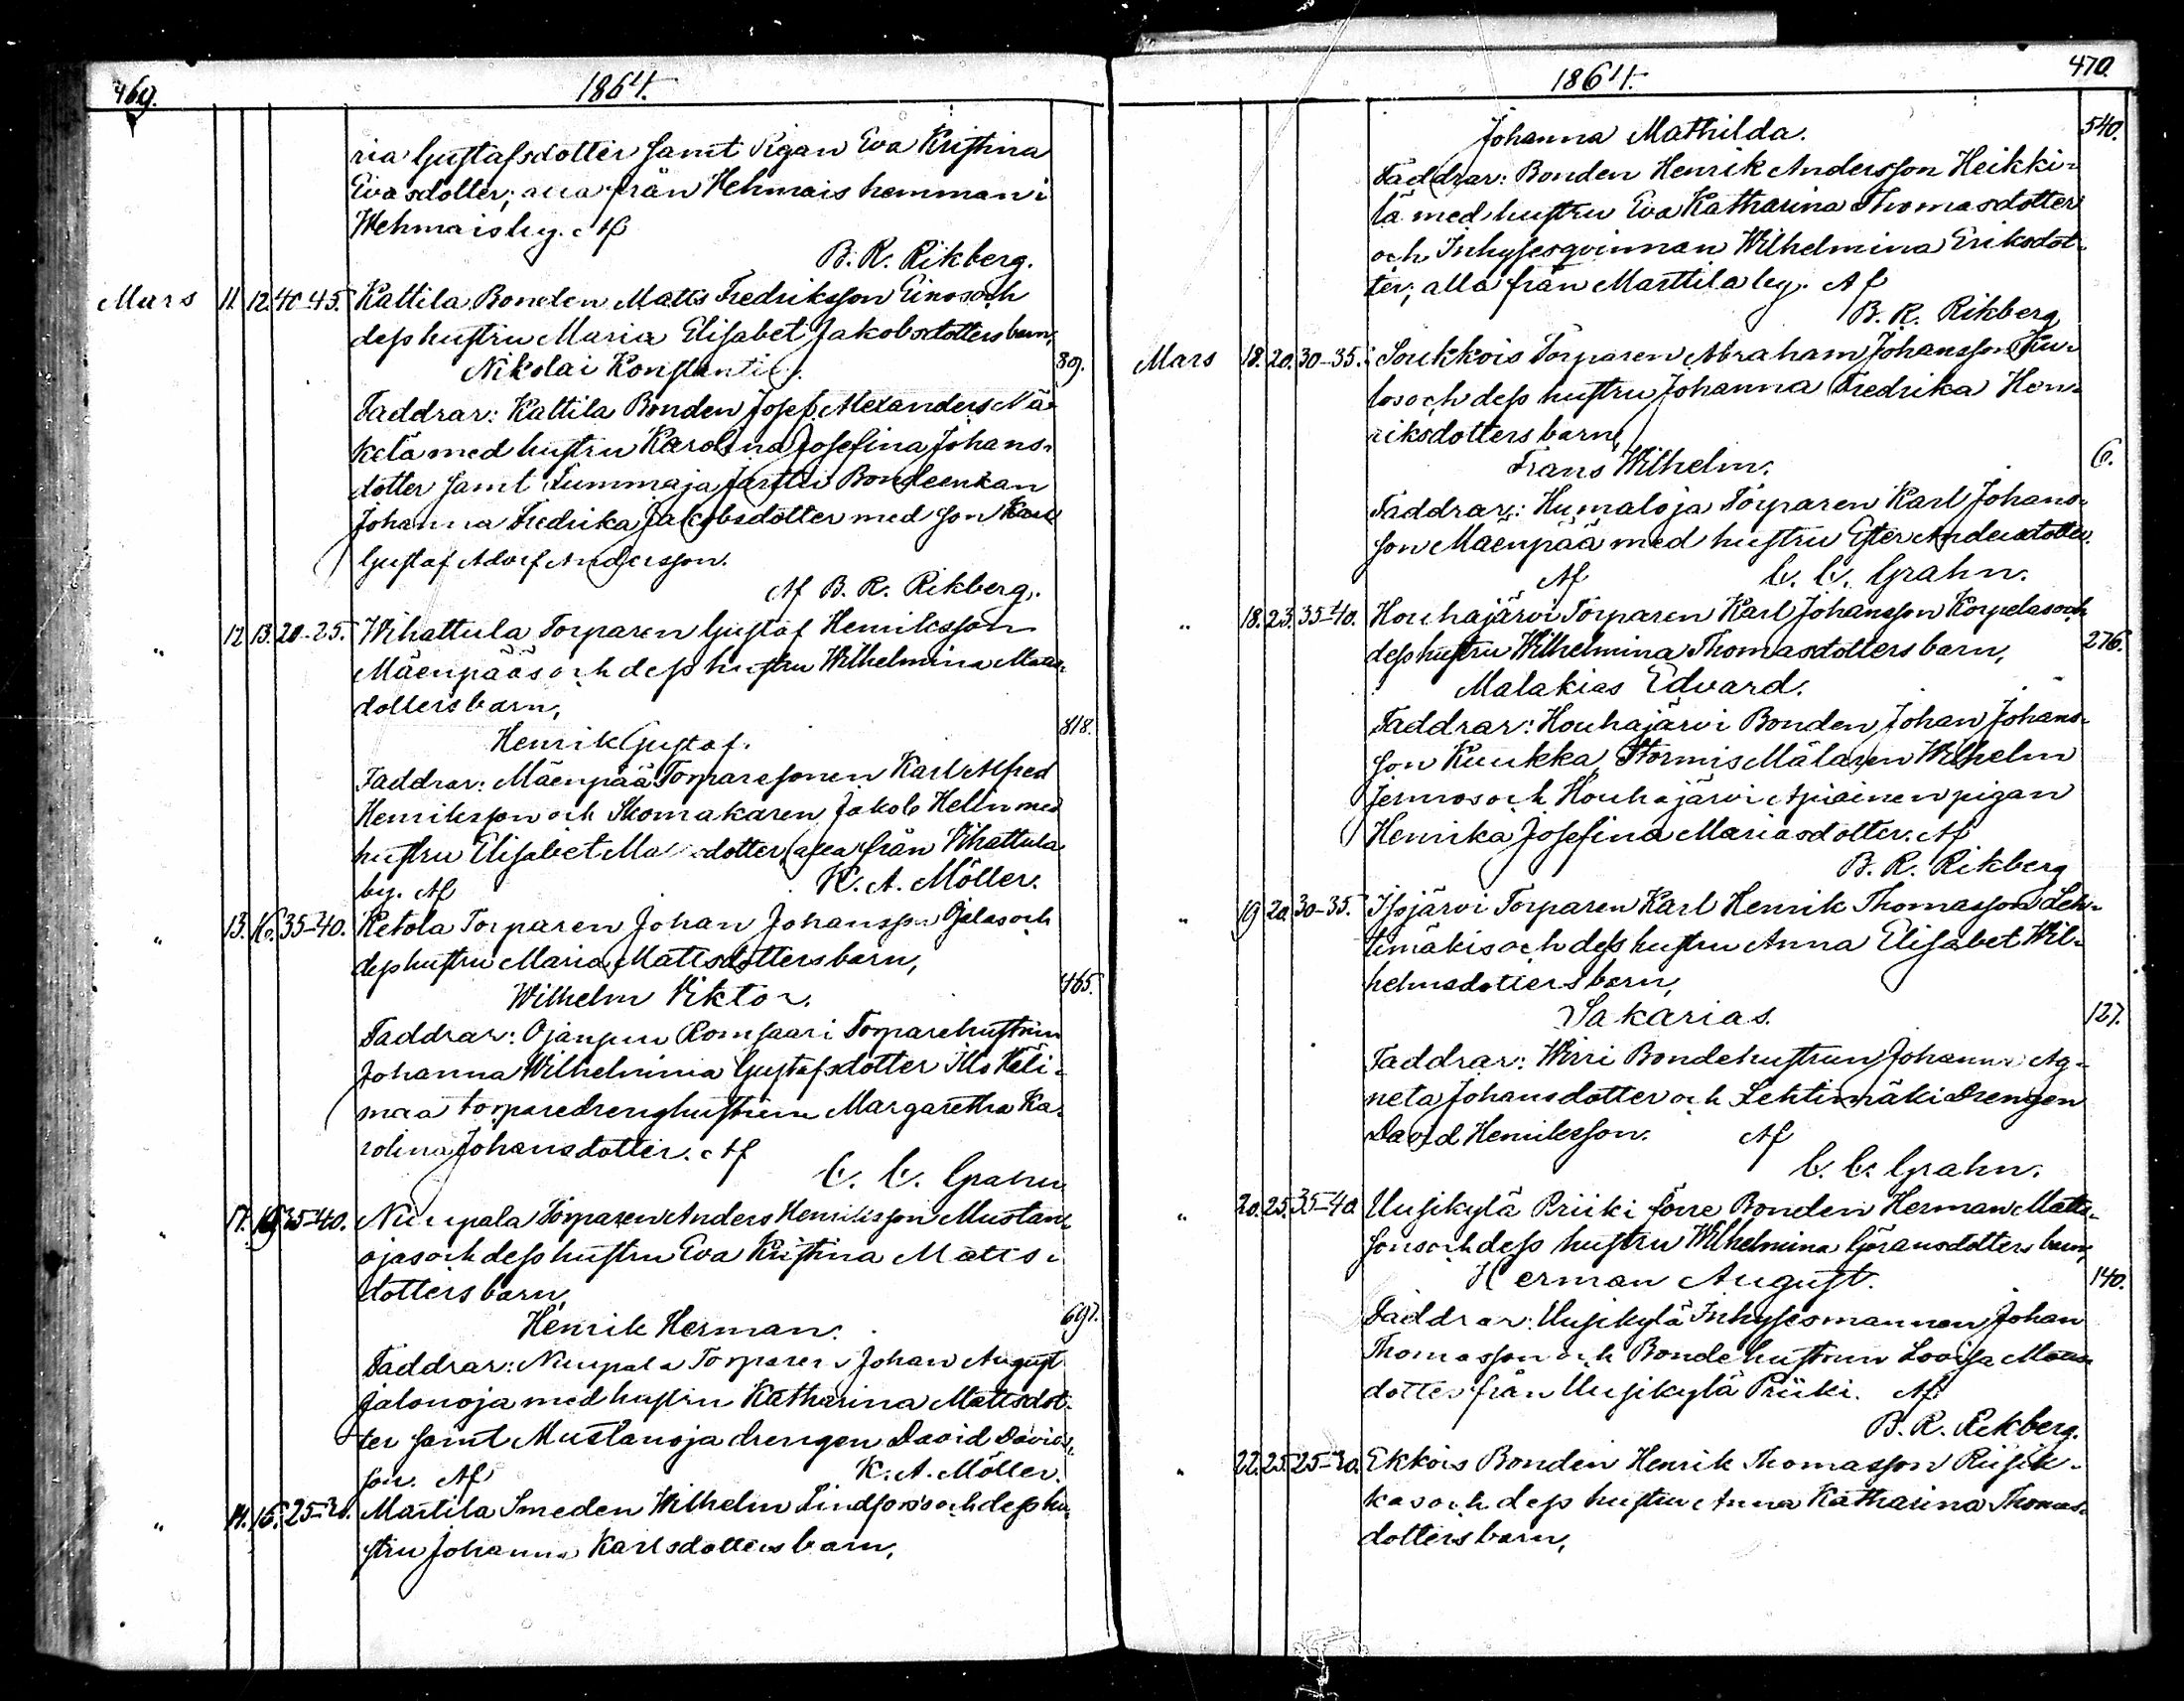 469.
1864.
ria Gustafsdotter samt Pigan Eva Kristina
Evasdotter; alla från Wehmais hemman i
Wehmais by. Af
B. R. Rikberg.
Mars 11. 12. 40-45. Kattila Bonden Matts Fredriksson Einos och
dess hustru Maria Elisabet Jakobsdotters barn,
Nikolai Konstantin. 89.
Faddrar: Kattila Bonden Josef Alexanders
kelä med hustru Karolina Josefina Johans-
dotter samt Bondeenkan
Johanna Fredrika Jakobsdotter med son Karl
Gustaf Adolf Andersson.
Af B. R. Rikberg.
" 12. 13. 20-25. Wihattula Torparen Gustaf Henriksson
Mäenpääs och dess hustru Wilhelmina
dotters barn,
Henrik Gustaf. 818.
Faddrar: Mäenpää Torparesonen Karl Alfred
Henriksson och Skomakaren Jakob Helin med
hustru Elisabet dotter alla från Wihattula
by. Af K. A. Möller.
" 13. 16. 35-40. Retola Torparen Johan Johansson Ojalas och
dess hustru Maria Mattsdotters barn,
Wilhelm Viktor. 465.
Faddrar: Ojansuu Torparehustrun
Johanna Wilhelmina Gustafsdotter Illo Wäli-
maa torparedrenghustrun Margaretha Ka-
rolina Johansdotter. Af
C. C. Grahn
" 17. 19. 35-40. Nuupala Torparen Anders Henriksson Mustan-
ojas och dess hustru Eva Kristina Matts-
dotters barn,
Henrik Herman. 697.
Faddrar: Nuupala Torparen Johan August
Jalonoja med hustru Katharina Mattsdot-
ter samt Mustanoja drengen David Davids-
son. Af K. A. Möller.
" 14. 16. 25-30. Marttila Smeden Wilhelm Lindfors's och dess hu-
stru Johanna Karlsdotters barn,
1864.
470.
Johanna Mathilda. 540.
Faddrar: Bonden Henrik Andersson Heikki-
lä med hustru Eva Katharina Thomasdotter
och Inhysesqvinnan Wilhelmina Eriksdot-
ter; alla från Marttila by. Af
B. R. Rikberg
Mars 18. 20. 30-35. Soukkois Torparen Abraham Johansson
los och dess hustru Johanna Fredrika Hen-
riksdotters barn,
Frans Wilhelm. 6.
Faddrar: Humaloja Torparen Karl Johans-
son Mäenpää med hustru Ester Andersdotter.
Af C. C. Grahn.
" 18. 23. 35-40. Houhajärvi Torparen Karl Johansson Korpelas och
dess hustru Wilhelmina Thomasdotters barn, 276.
Malakias Edvard.
Faddrar: Houhajärvi Bonden Johan Johans-
son Kuukka, Stormis Målaren Wilhelm
och Houhajärvi Apiainen pigan
Henrika Josefina Mariasdotter. Af
B. R. Rikberg
" 19. 20. 30-35. Isojärvi Torparen Karl Henrik Thomasson Leh-
timäkis och dess hustru Anna Elisabet Wil-
helmsdotters barn,
Sakarias. 127.
Faddrar: Wirri Bondehustrun Johanna Ag-
neta Johansdotter och Lehtimäki Drengen
David Henriksson. Af
C. C. Grahn.
" 20. 25. 35-40. Uusikylä Priiki förre Bonden Herman Matts-
sons och dess hustru Wilhelmina Göransdotters barn,
Herman August. 140.
Faddrar: Uusikylä Inhysesmannen Johan
Thomasson och Bondehustrun Lovisa
dotter från Uusikylä Priiki. Af
B. R. Rikberg.
" 22. 25. 25-30. Ekkois Bonden Henrik Thomasson
kas och dess hustru Anna Katharina Thomas-
dotters barn,